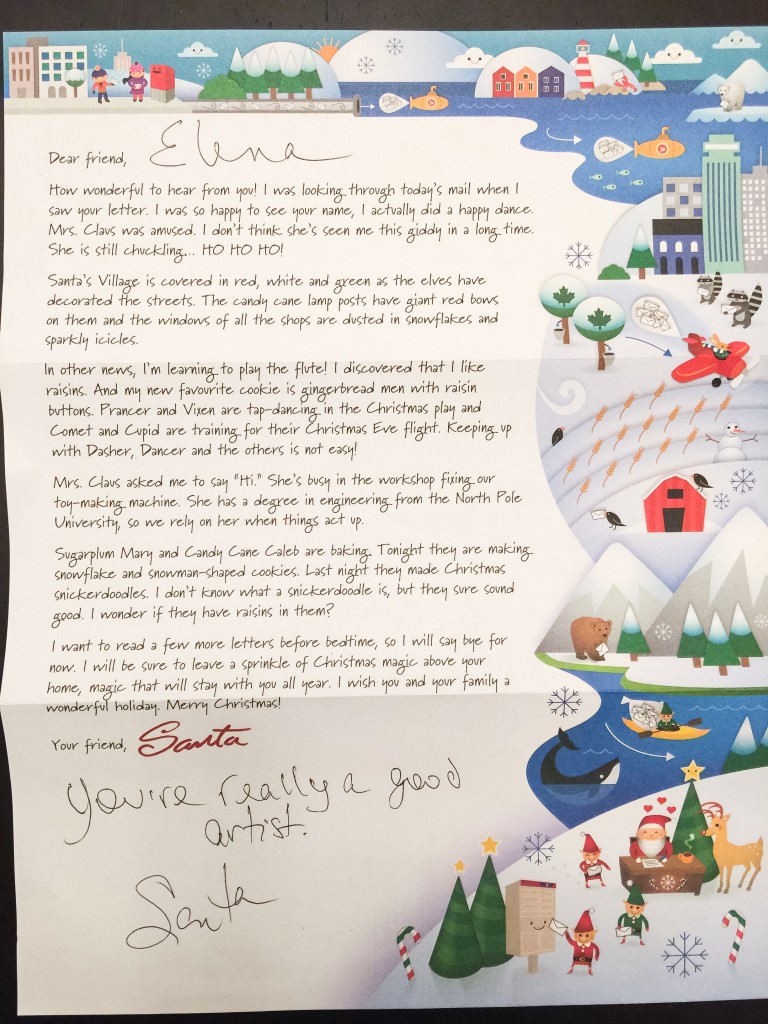 Dear friend, Elena
How wonderful to hear from you! I was looking through today's mail when I
saw your letter. I was so happy to see your name, I actually did a happy dance.
Mrs. Claus was amused. I don't think she's seen me this giddy in a long time.
She is still chuckling... HO HO HO!
Santa's Village is covered in red, white and green as the elves have
decorated the streets. The candy cane lamp posts have giant red bows
on them and the windows of all the shops are dusted in snowflakes and
sparkly icicles.
In other news, I'm learning to play the flute! I discovered that I like
raisins. And my new favourite cookie is gingerbread men with raisin
buttons. Prancer and Vixen are tap-dancing in the Christmas play and
Comet and Cupid are training for their Christmas Eve flight. Keeping up
with Dasher, Dancer and the others is not easy!
Mrs. Claus asked me to say "Hi." She's busy in the workshop fixing our
toy-making machine. She has a degree in engineering from the North Pole
University, so we rely on her when things act up.
Sugarplum Mary and Candy Cane Caleb are baking. Tonight they are making
snowflake and snowman-shaped cookies. Last night they made Christmas
snickerdoodles. I don't know what a snickerdoodle is, but they sure sound
good. I wonder if they have raisins in them?
I want to read a few more letters before bedtime, so I will say bye for
now. I will be sure to leave a sprinkle of Christmas magic above your
home, magic that will stay with you all year. I wish you and your family a
wonderful holiday. Merry Christmas!
Your friend, Santa
You're really a good
artist.
Santa